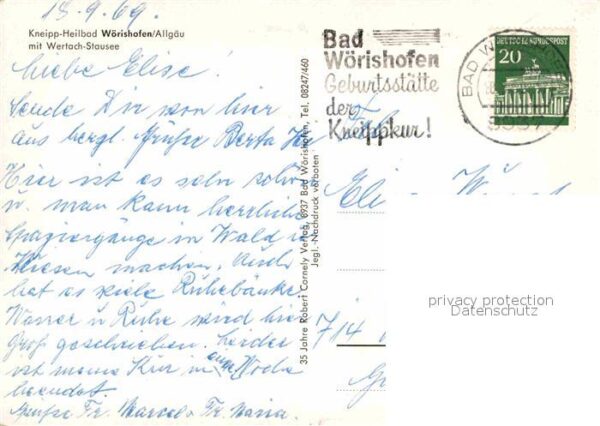 13.9.69.
Kneipp-Heilbad Wörishofen/Allgäu
mit Wertach-Stausee
Liebe Elise!
Sende Dir von hier
aus herzl. Grüße Berta
Hier ist es sehr schön
u. man kann herrliche
Spaziergänge in Wald u
Wiesen machen. Auch
hat es viele Ruhebänke
Wasser u Ruhe wird hier
Groß geschrieben. Leider
ist meine Kur in einer Woche
beendet
Grüße Fr. Marcel u Fr. Maria.
35 Jahre Robert Cornely Verlag, 8937 Bad Wörishofen, Tel. 08247/460
Jegl. Nachdruck verboten
Bad
Wörishofen
Geburtsstätte
der
Kneippkur!
DEUTSCHE BUNDESPOST
20
BAD W
8937
714
privacy protection
Datenschutz